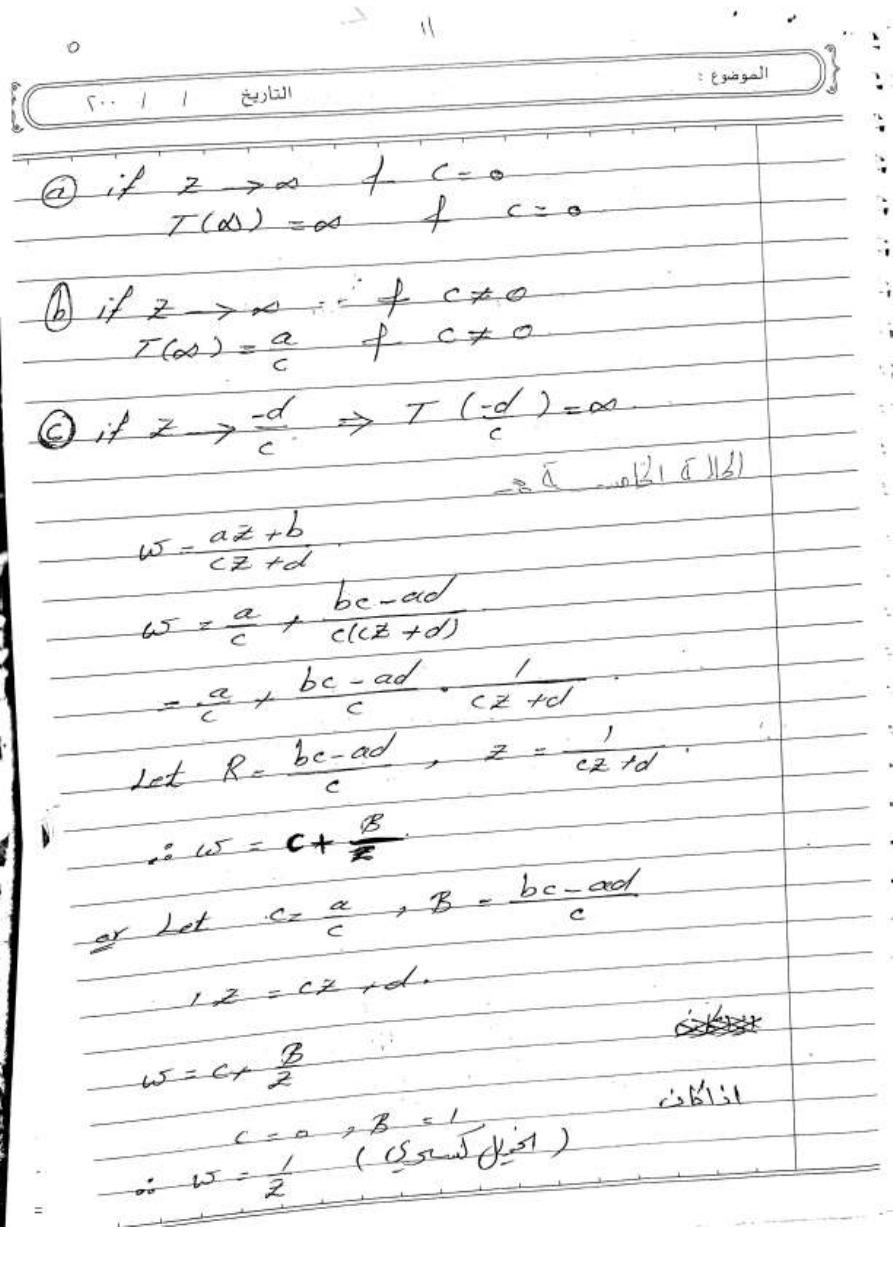 ١١
الموضوع :
التاريخ / / ٢٠٠
(a) if z → ∞ & c = 0
T(∞) = ∞ & c = 0
(b) if z → ∞ & c ≠ 0
T(∞) = a/c & c ≠ 0
(c) if z → -d/c ⇒ T(-d/c) = ∞
الحالة الخاصة :-
w = (az + b)/(cz + d)
w = a/c + (bc - ad)/(c(cz + d))
= a/c + (bc - ad)/c · 1/(cz + d)
Let R = (bc - ad)/c , z = 1/(cz + d) .
∴ w = c + B/z
or Let c = a/c , B = (bc - ad)/c
, z = cz + d.
w = c + B/z
اذا كان
c = 0 , B = 1
∴ w = 1/z (كسري)